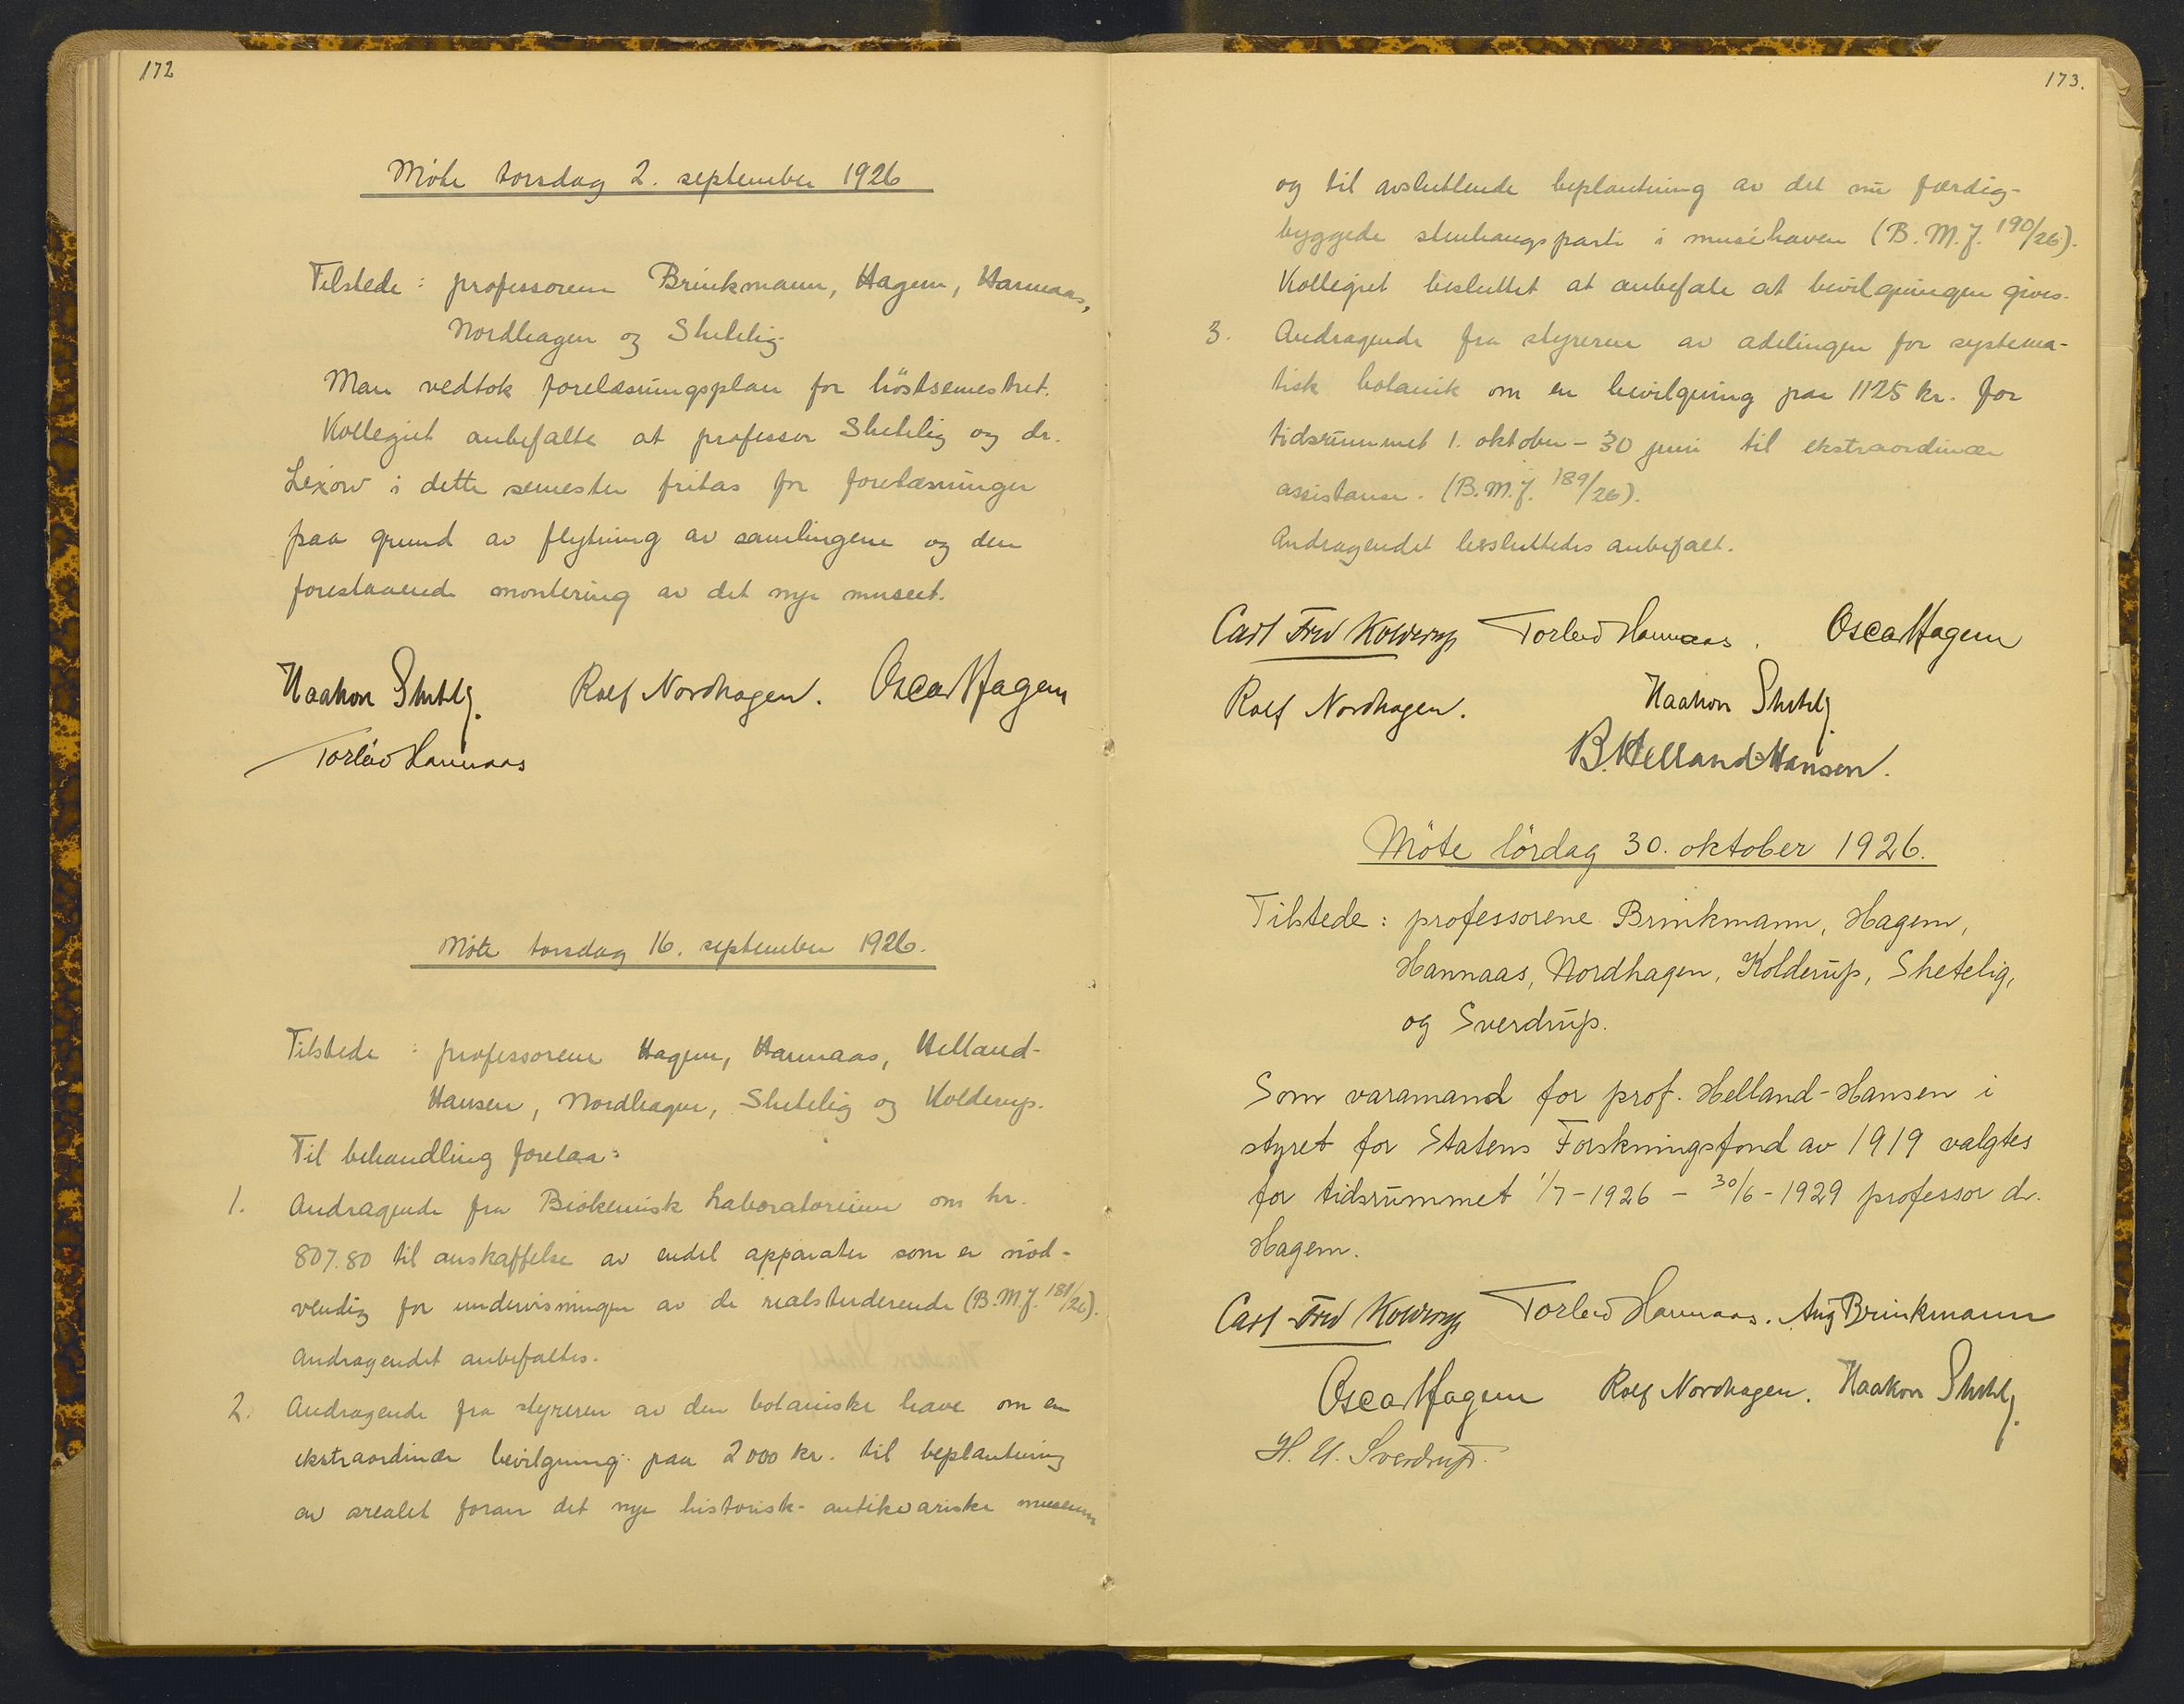 172
Möte torsdag 2. september 1926
Tilstede : professorene Brinkmann, Hagem, Hannaas,
Nordhagen og Shetelig.
Man vedtok forelæsningsplan for höstsemestret.
Kollegiet anbefalte at professor Shetelig og dr.
Lexow i dette semester fritas for forelæsninger
paa grund av flytning av samlingene og den
forestaaende montering av det nye museet.
Haakon Shetelig. Rolf Nordhagen. Oscar Hagem
Torleiv Hannaas
Möte torsdag 16. september 1926.
Tilstede : professorene Hagem, Hannaas, Helland-
Hansen, Nordhagen, Shetelig og Kolderup.
Til behandling forelaa:
1. Andragende fra Biokemisk Laboratorium om kr.
807.80 til anskaffelse av endel apparater som er nöd-
vendig for undervisningen av de realstuderende (B.M.J. 181/26).
Andragendet anbefaltes.
2. Andragende fra styreren av den botaniske have om en
ekstraordinær bevilgning paa 2000 kr. til beplantning
av arealet foran det nye historisk-antikvariske museum
173.
og til avsluttende beplantning av det nu færdig-
byggede stenhaugsparti i muséhaven (B.M.J. 190/26).
Kollegiet besluttet at anbefale at bevilgningen gives.
3. Andragende fra styreren av adelingen for systema-
tisk botanik om en bevilgning paa 1125 kr. for
tidsrummet 1. oktober - 30 juni til ekstraordinær
assistanse. (B.M.J. 189/26).
Andragendet besluttedes anbefalt.
Carl Fred Kolderup Torleiv Hannaas. Oscar Hagem
Rolf Nordhagen. Haakon Shetelig
B. Helland-Hansen.
Möte lördag 30. oktober 1926.
Tilstede : professorene Brinkmann, Hagem,
Hannaas, Nordhagen, Kolderup, Shetelig,
og Sverdrup.
Som varamand for prof. Helland-Hansen i
styret for Statens Forskningsfond av 1919 valgtes
for tidsrummet 1/7-1926 - 30/6-1929 professor dr.
Hagem.
Carl Fred Kolderup Torleiv Hannaas. Aug Brinkmann
Oscar Hagem Rolf Nordhagen. Haakon Shetelig.
H. U. Sverdrup.